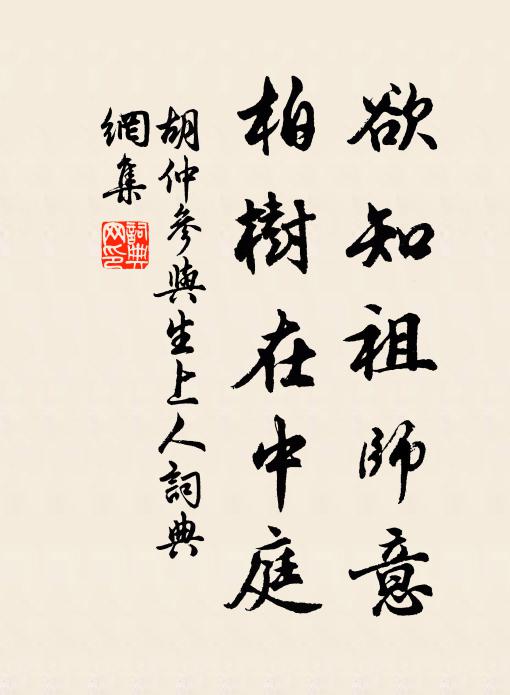 欲知祖師意
柏樹在中庭
胡仲參與生上人詞典
網集
詞典
网印